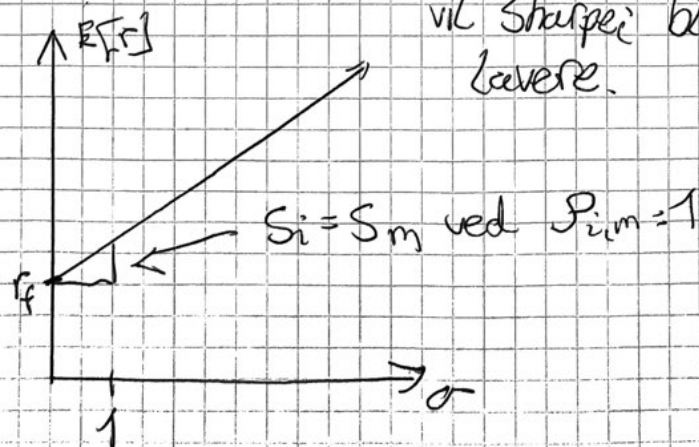 E[r]
vil Sharpe i
lavere.
Si = Sm ved ρi,m = 1
rf
σ
1